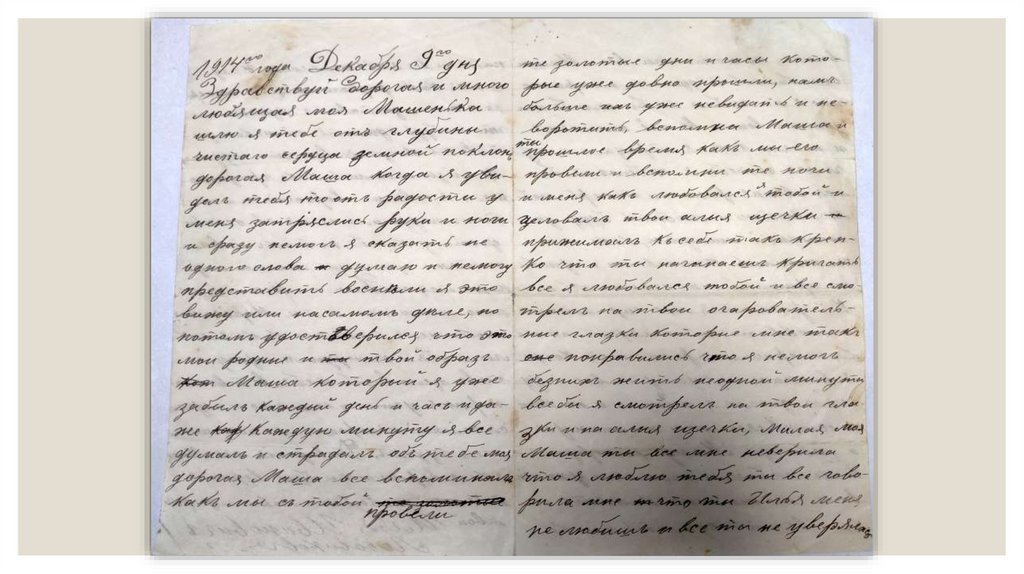 1914го года Декабря 9го дня
Здравствуй дорогая и много
любящая моя Машенька
шлю я тебе отъ глубины
чистаго сердца земной поклонъ
дорогая Маша когда я уви-
дель тебя то отъ радости у
меня затряслись руки и ноги
и сразу немогъ я сказать не
одного слова думаю и немогу
представить восне ли я это
вижу или насамомъ деле, но
потомъ удостоверился что это
мои родные и твой образъ
Маша который я уже
забылъ каждый день и часъ и да-
же каждую минуту я все
думалъ и страдалъ объ тебе моя
дорогая Маша все вспоминалъ
какъ мы съ тобой
провели
те золотые дни и часы кото-
рые уже довно прошли, намъ
больше ихъ уже невидать и не-
воротить, вспомни Маша и
ты
прошлое время какъ мы его
провели и вспомни те ночи
и меня какъ любовался тобой и
целовалъ твои алыя щечки
прижимаъ къ себе такъ креп-
ко что ты начинаешъ кричать
все я любовался тобой и все смо-
трелъ на твои очарователь-
ные глазки которые мне такъ
понравились что я немогъ
безнихъ жить неодной минуты
всебы я смотрелъ на твои гла
зки и на алыя щечки, Милая моя
Маша ты все мне неверила
что я люблю тебя ты все гово
рила мне что ты Илья меня
не любишь и все ты не уверялас